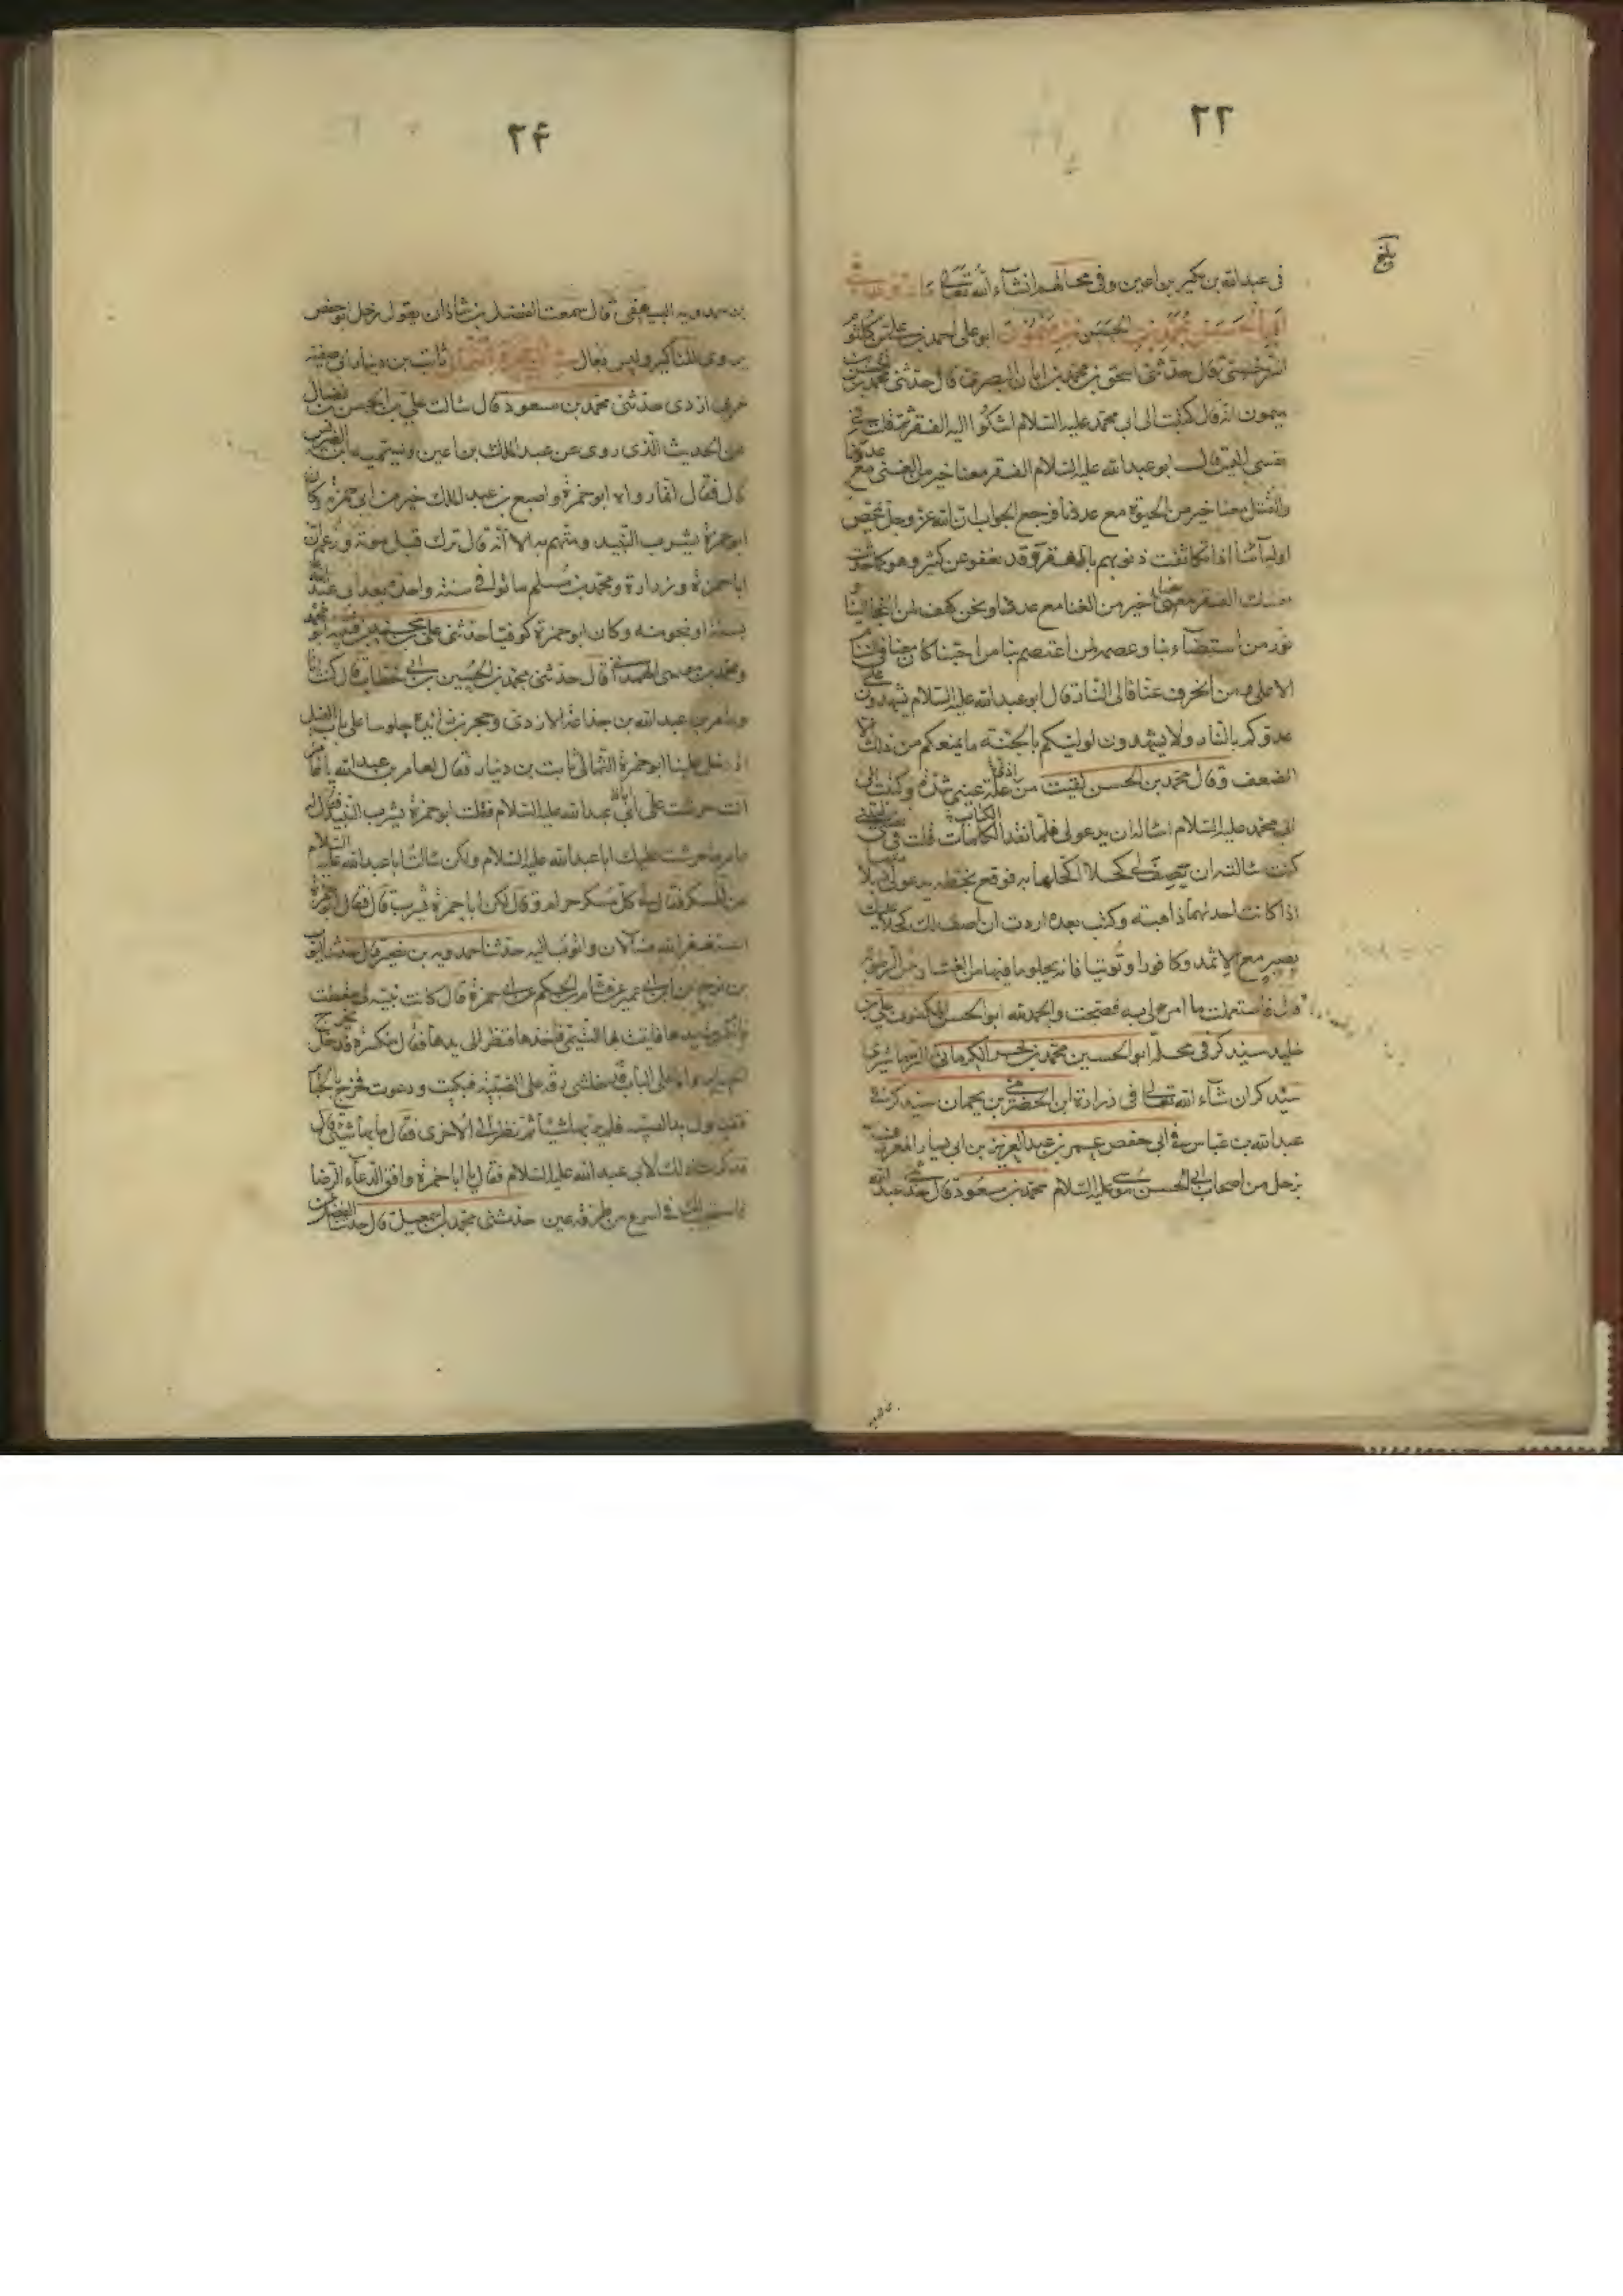 ۲۳
بلغ
فى عبدالله بن بكير بن اعين وفى محالهم انشآء الله تعالى
ابى الحسن محمد بن الحسن بن ميمون ابو على احمد بن على بن كلثوم
السرخسى قال حدثنى اسحق بن محمد بن ابان البصرى قال حدثنى محمد بن الحسن بن
ميمون انه قال كتبت الى ابى محمد عليه السلام اشكوا اليه الفقر ثم قلت فى
نفسى اليس قال ابو عبدالله عليه السلام الفقر معنا خير من الغنى مع عدونا
والقتل معنا خير من الحيوة مع عدونا فرجع الجواب ان الله عز وجل يمحص
اوليآئنا اذا تكاثفت ذنوبهم بالفقر وقد يعفو عن كثير وهو كما حدثت
نفسك الفقر معنا خير من الغنا مع عدونا ونحن كهف لمن التجا الينا و
نور من استضآء بنا وعصمة لمن اعتصم بنا من احبنا كان معنا فى السنام
الاعلى ومن انحرف عنا فالى النار قال ابو عبدالله عليه السلام تشهدون على
عدوكم بالنار ولا تشهدون لوليكم بالجنة ما يمنعكم من ذلك الا
الضعف وقال محمد بن الحسن لقيت من علة عينى شدة وكتبت الى
ابى محمد عليه السلام اساله ان يدعو لى فلما نفد الكتاب قلت فى نفسى ليتنى
كنت سالته ان يصف لى كحلا اكحلها به فوقع بخطه يدعو لى
اذا كانت احديهما ذاهبة وكتب بعده اردت ان اصف لك كحلا عليك
بصبر مع الاثمد وكافورا وتوتيا فانه يجلو ما فيها من الغشا
قال فاستعملت ما امرنى به فصحت والحمد لله ابو الحسن المكفوف على بن
خليد سيذكر فى محله ابو الحسين محمد بن بحر الكرمانى النرماشيرى
سيذكر ان شآء الله تعالى فى زرارة ابن الحضرمى بن بحمان سيذكر فى
عبدالله بن عباس فى ابى حفص عمر بن عبد العزيز بن ابى بشار المعروف
بزحل من اصحاب ابى الحسن موسى عليه السلام محمد بن مسعود قال حدثنى عبدالله
۲۴
بن حمدويه البيهقى قال سمعت الفضل بن شاذان يقول زحل ابو حفص
يروى المناكير وليس بغال فى ابى حمزة الثمالى ثابت بن دينار ابى صفية
عربى ازدى حدثنى محمد بن مسعود قال سالت على بن الحسن بن فضال
عن الحديث الذى روى عن عبد الملك بن اعين وتسمية ابنه الضريس
قال فقال انما رواه ابو حمزة واصبع بن عبد الملك خير من ابى حمزة وكان
ابو حمزة يشرب النبيذ ومتهم به الا انه قال ترك قبل موته وزعم ان
ابا حمزة وزرارة ومحمد بن مسلم ماتوا فى سنة واحدة بعد ابى عبدالله
بسنة او نحو منه وكان ابو حمزة كوفيا حدثنى على بن محمد بن قتيبة ابو محمد
ومحمد بن موسى الهمدانى قال حدثنى محمد بن الحسين بن ابى خطاب قال كنت انا
وعامر بن عبدالله بن جذاعة الازدى وحجر بن زائدة جلوسا على باب الفيل
اذ دخل علينا ابو حمزة الثمالى ثابت بن دينار فقال لعامر بن عبدالله يا عامر
انت حرشت على ابا عبدالله عليه السلام فقلت ابو حمزة يشرب النبيذ فقال له
عامر ما حرشت عليك ابا عبدالله عليه السلام ولكن سالت ابا عبدالله عليه السلام
عن المسكر فقال لى كل مسكر حرام وقال لكن ابا حمزة يشرب قال فقال ابو حمزة
استغفر الله منه الان واتوب اليه حدثنا حمدويه بن نصير قال حدثنا ايوب
بن نوح عن ابن ابى عمير عن هشام بن الحكم عن ابى حمزة قال كانت بنية لى سقطت
فانكسرت يدها فاتيت بها التيمى فاخذها فنظر الى يدها فقال منكسرة فدخل يخرج
الجباير وانا على الباب فدخلتنى رقة على الصبية فبكيت ودعوت فخرج بالجباير
فتناول يد الصبية فلم ير بها شيئا ثم نظر الى الاخرى فقال ما بها شيئ قال
فذكرت ذلك لابى عبدالله عليه السلام فقال يا ابا حمزة وافق الدعآء الرضا
فاستجيب لك فى اسرع من طرفة عين حدثنى محمد بن اسمعيل قال حدثنا الفضل